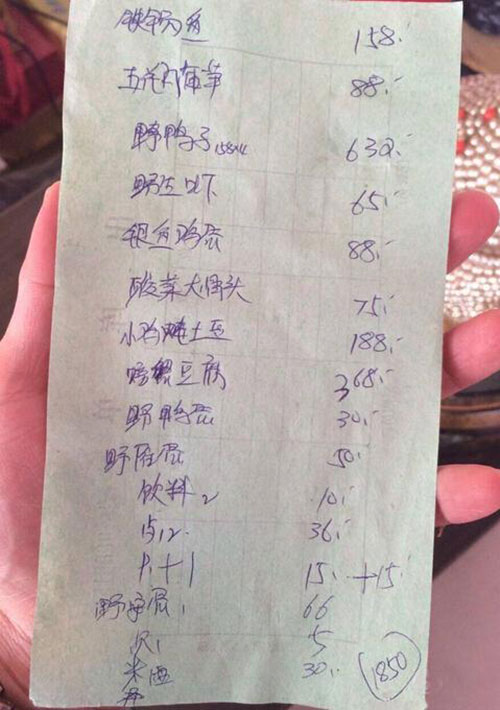 铁锅鱼 158.-
五花肉蒲笋 88.-
野鸭子 158×4 632.-
野生虾 65.-
银鱼鸡蛋 88.-
酸菜大骨头 75.-
小鸡炖土豆 188.-
螃蟹豆腐 368.-
野鸭蛋 30.-
野雁蛋 50.-
饮料2 10.-
36.-
1+1 15.- +15.-
蛋1 66
5
米酒 30.- 1850